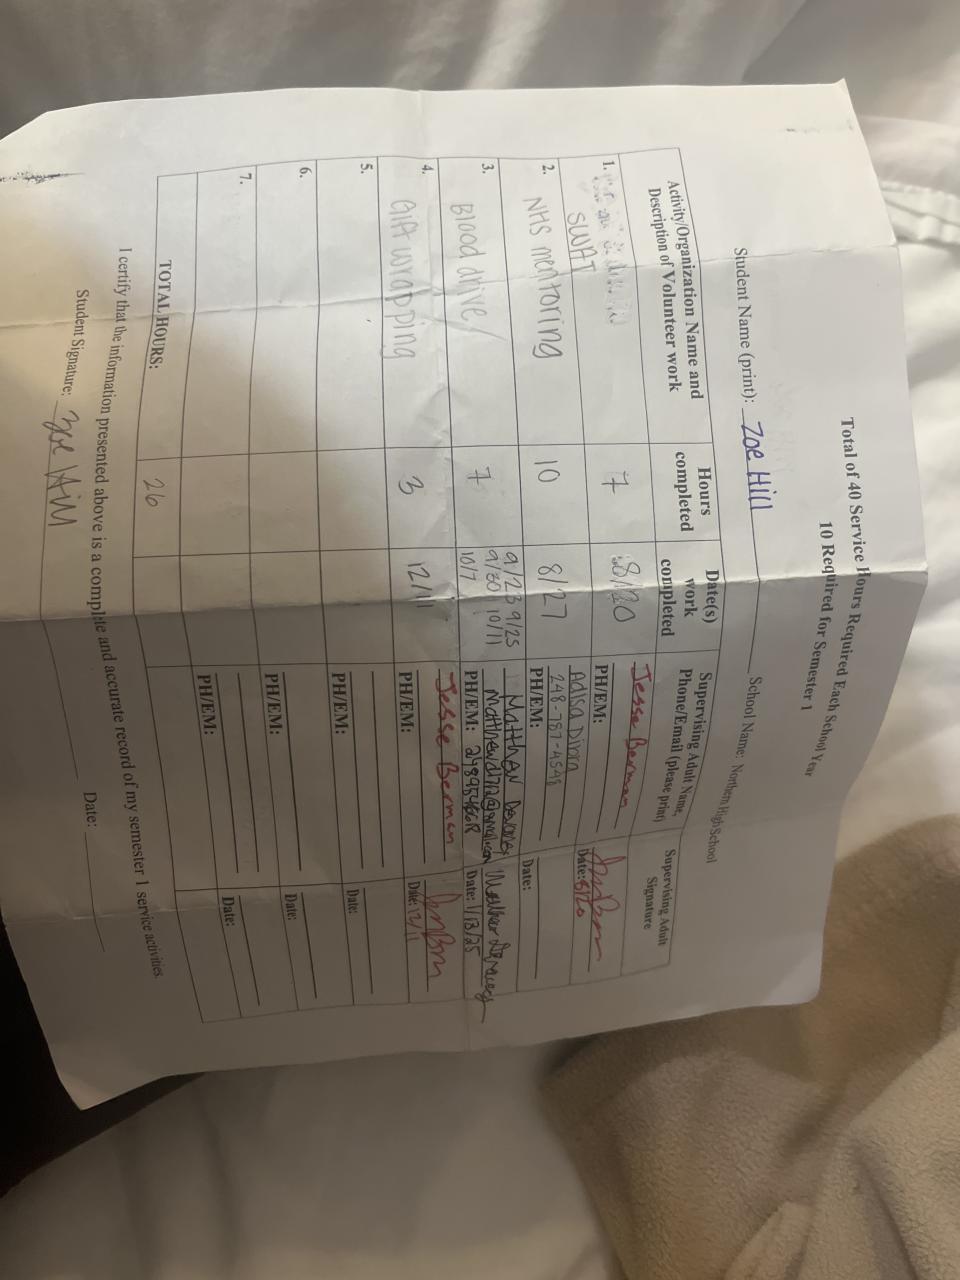 Total of 40 Service Hours Required Each School Year
10 Required for Semester 1
Student Name (print): Zoe Hill School Name: Northern High School
Activity/Organization Name and Description of Volunteer work
Hours completed
Date(s) work completed
Supervising Adult Name, Phone/Email (please print)
Supervising Adult Signature
1.
SWAT
7
8/20
Jesse Berman
PH/EM:
Date: 8/20
2. NHS mentoring
10
8/27
Adisa
248-787-4548
PH/EM:
Date:
3. Blood drive
7
9/23 9/25
9/30 10/11
10/7
Matthew
PH/EM:
Date: 1/13/25
4. Gift wrapping
3
12/11
Jesse Berman
PH/EM:
Date: 12/11
5.
PH/EM:
Date:
6.
PH/EM:
Date:
7.
PH/EM:
Date:
TOTAL HOURS: 26
I certify that the information presented above is a complete and accurate record of my semester 1 service activities.
Student Signature: Zoe Hill Date: